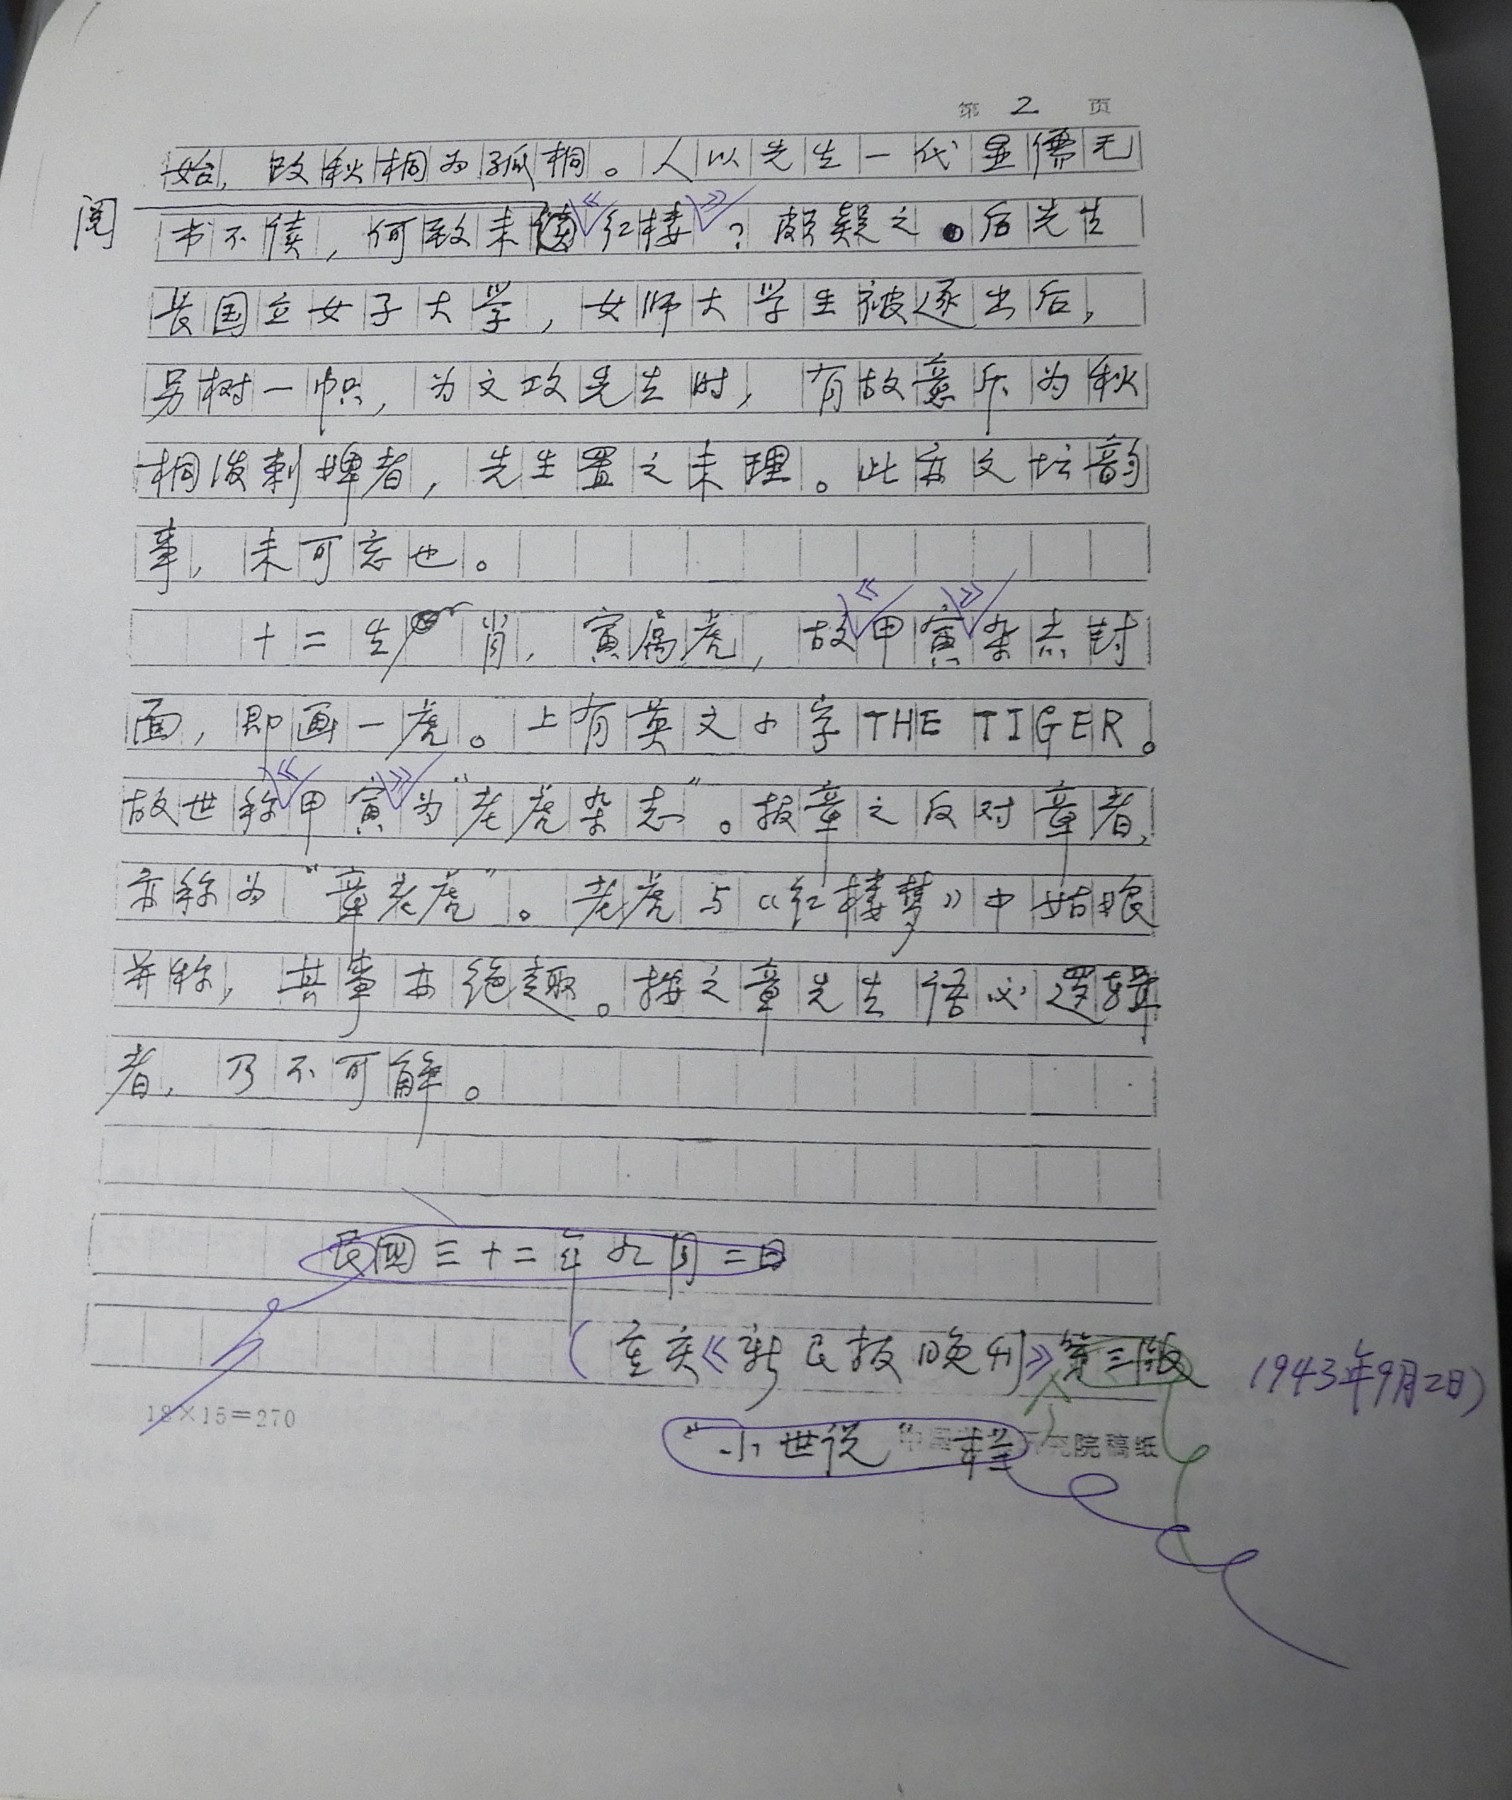 第 2 页
始，改秋桐为孤桐。人以先生一代显儒无
阅
书不读，何致未读《红楼》？颇疑之。后先生
长国立女子大学，女师大学生被逐出后，
另树一帜，为文攻先生时，有故意斥为秋
桐泼剌婢者，先生置之未理。此亦文坛韵
事，未可忘也。
十二生肖，寅属虎，故《甲寅》杂志封
面，即画一虎。上有英文小字THE TIGER。
故世称《甲寅》为“老虎杂志”。报章之反对章者，
亦称为“章老虎”。老虎与《红楼梦》中姑娘
并称，其事亦绝趣。按之章先生语必逻辑
者，乃不可解。
民国三十二年九月二日
(重庆《新民报晚刊》第三版 1943年9月2日)
18×15=270
“小世说”栏 究院稿纸